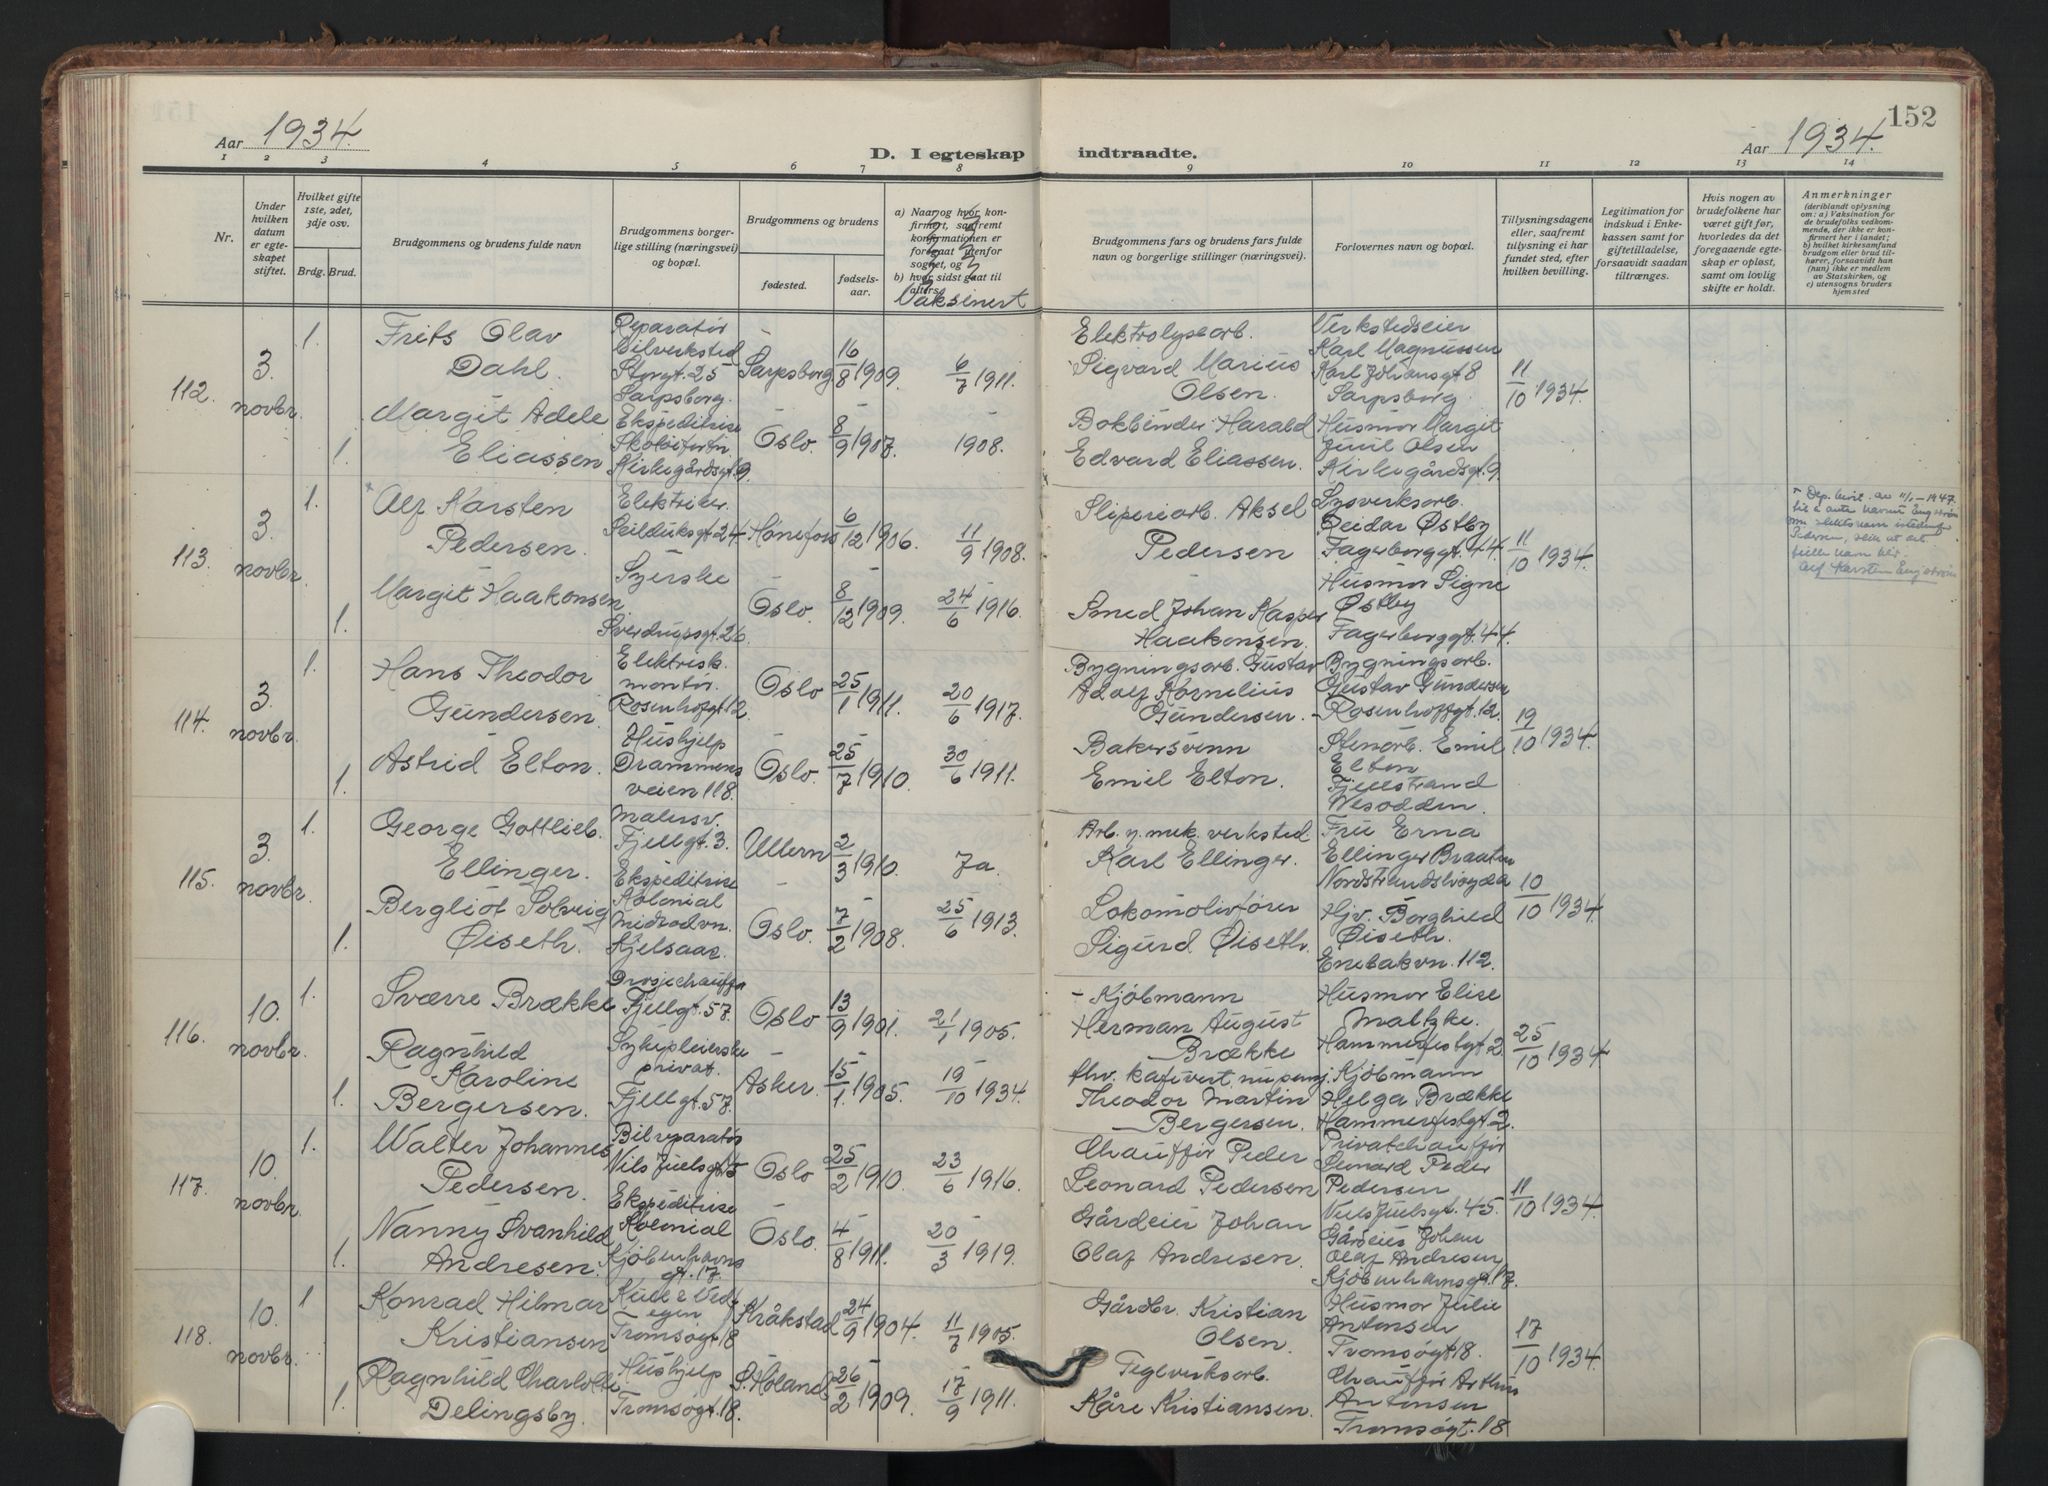 152
Aar 1934.
D. I egteskap indtraadte.
Aar 1934.
1 2 3 4 5 6 7 8 9 10 11 12 13 14
Nr.
Under hvilken datum er egteskapet stiftet.
Hvilket gifte 1ste, 2det, 3dje osv.
Brdg. Brud.
Brudgommens og brudens fulde navn
Brudgommens borgerlige stilling (næringsvei) og bopæl.
Brudgommens og brudens
fødested.
fødselsaar.
a) Naar og hvor konfirmert, saafremt konfirmationen er foregaat utenfor sognet, og
b) hvor sidst gaat til alters.
Vaksinert
Brudgommens fars og brudens fars fulde navn og borgerlige stillinger (næringsvei).
Forlovernes navn og bopæl.
Tillysningsdagene eller, saafremt tilysning ei har fundet sted, efter hvilken bevilling.
Legitimation for indskud i Enkekassen samt for giftetilladelse, forsaavidt saadan tiltrænges.
Hvis nogen av brudefolkene har været gift før, hvorledes da det foregaaende egteskap er opløst, samt om lovlig skifte er holdt.
Anmerkninger
(deriblandt oplysning om: a) Vaksination for de brudefolks vedkommende, der ikke er konfirmert her i landet; b) hvilket kirkesamfund brudgom eller brud tilhører, forsaavidt han (hun) ikke er medlem av Statskirken, og c) utensogns bruders hjemsted
112. 3. novbr.
1. Frits Olav Dahl.
Reparatør Bilverksted Storgt. 25 Sarpsborg.
Sarpsborg 16/8 1909. 6/7 1911.
Elektrolysearb. Sigvard Marius Olsen.
Verkstedseier Karl Magnussen Karl Johansgt 8 Sarpsborg.
11/10 1934.
1. Margit Adele Eliassen
Ekspeditrise Kirkegårdsgt. 9
Oslo. 8/9 1907. 1908.
Bokbinder Harald Edvard Eliassen.
Husmor Margit Juul Olsen Kirkegårdsgt. 9
113. 3. novbr.
1. × Alf Karsten Pedersen.
Elektriker Seilduksgt 24
Hønefoss 6/12 1906. 11/9 1908.
Sliperiarb. Aksel Pedersen
Lysverksarb. Reidar Østby Fagerborggt. 44
11/10 1934.
× Dep. bevit. av 11/1-1947 til å anta navnet Engstrøm som slektsnavn istedenfor Pedersen, slik at det fulle navn blir Alf Karsten Engstrøm
1. Margit Haakonsen
Syerske Sverdrupsgt. 26.
Oslo. 8/12 1909. 24/6 1916.
Smed Johan Kasper Haakonsen.
Husmor Signe Østby Fagerborggt. 44.
114. 3. novbr.
1. Hans Theodor Gundersen.
Elektrisk. montør. Rosenhoffgt 12
Oslo 25/1 1911. 20/6 1917.
Bygningsarb. Gustav Adolf Kornelius Gundersen.
Bygningsarb. Gustav Gundersen Rosenhoffgt. 12.
19/10 1934.
1. Astrid Elton.
Hushjelp Drammensveien 118.
Oslo. 25/7 1910. 30/6 1911.
Bakersvenn Emil Elton.
Stenarb. Emil Elton Fjellstrand Nesodden.
115. 3. novbr.
1. George Gottlieb. Ellinger.
Malersv. Fjellgt. 3.
Ullern 2/3 1910. Ja.
Arb. v. mek. verksted. Karl Ellinger.
Fru Erna Ellinger Braaten Nordstrandshøgda
10/10 1934.
1. Bergliot Solveig Øiseth.
Ekspeditrise Kolonial Midtoddvn. Kjelsaas.
Oslo. 7/2 1908. 25/6 1913.
Lokomotivfører Sigurd Øiseth.
Hjv. Borghild Øiseth. Enebakvn. 112.
116. 10. novbr.
1. Sverre Brække
Drosjechauffør Fjellgt. 57.
Oslo 13/9 1901. 21/1 1905.
Kjøbmann Herman August Brække
Husmor Elise Maltzke. Hammerfestgt 2
25/10 1934.
1. Ragnhild Karoline Bergersen.
Sykepleierske privat. Fjellgt. 57.
Asker. 15/1 1905. 19/10 1934.
fhv. kafévert, Theodor Martin Bergersen.
Kjøbmann Helga Brække Hammerfestgt 2.
117. 10. novbr.
1. Walter Johannes Pedersen.
Bilreparatør Nils Juelsgt 45
Oslo 25/2 1910. 23/6 1916.
Chauffør Peder Leonard Pedersen
Privatchauffør Leonard Peder Pedersen Niels Juelsgt. 45.
11/10 1934.
1. Nanny Svanhild Andresen.
Ekspeditrise Kolonial Kjøbenhavnsgt. 17.
Oslo. 4/8 1911. 20/3 1919.
Gårdeier Johan Olaf Andresen.
Gårdeier Johan Olaf Andresen Kjøbenhavnsgt. 17.
118. 10. novbr.
1 Konrad Hilmar Kristiansen
Kull & Ved egen Tromsøgt 18
Kråkstad 24/9 1904. 11/7 1905.
Gårdbr. Kristian Olsen.
Husmor Julie Antonsen Tromsøgt 18.
17/10 1934.
1. Ragnhild Charlotte Delingsby.
Hushjelp Tromsøgt. 18.
S. Høland 26/2 1909. 17/9 1911.
Teglverksarb. Kåre Kristiansen.
Chauffør Arthur Antonsen Tromsøgt. 18